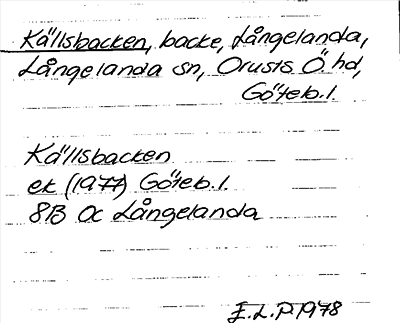 Källsbacken, backe, Långelanda,
Långelanda sn, Orusts Ö. hd,
Göteb. l.
Källsbacken
ek (1977) Göteb. l.
8B 0c Långelanda
E.L.P. 1978